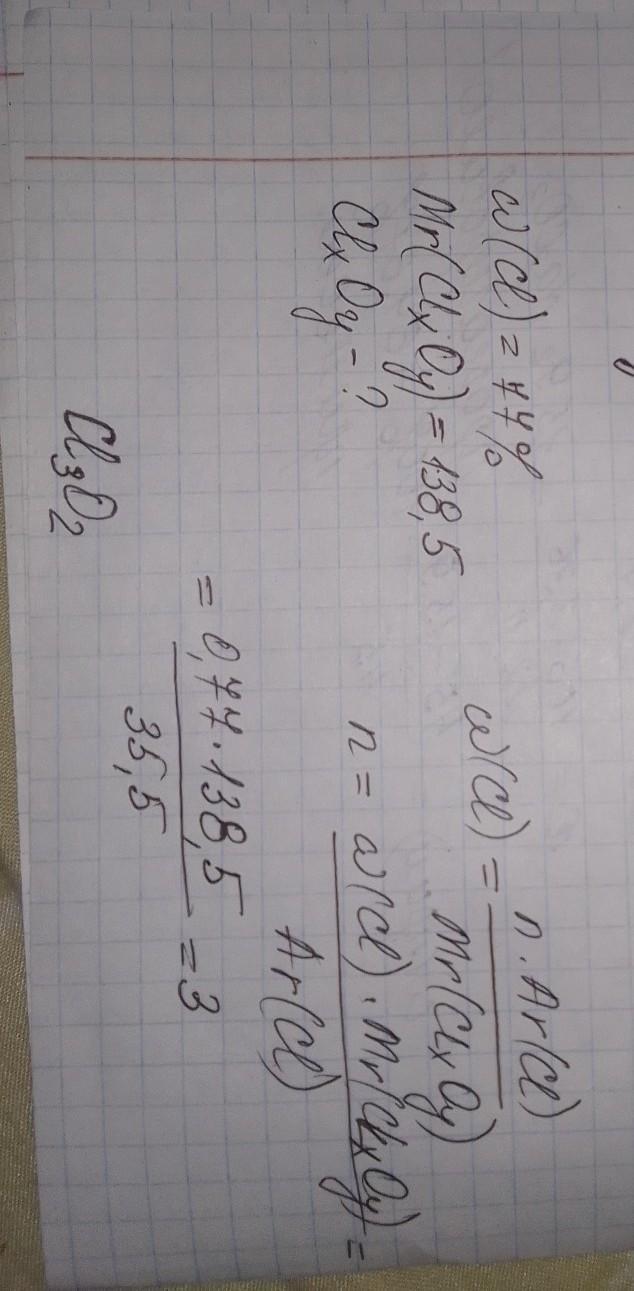 w(Cl) = 77%
Mr(ClxOy) = 138,5
ClxOy - ?
w(Cl) = n · Ar(Cl) / Mr(ClxOy)
n = w(Cl) · Mr(ClxOy) / Ar(Cl) =
= 0,77 · 138,5 / 35,5 = 3
Cl3O2